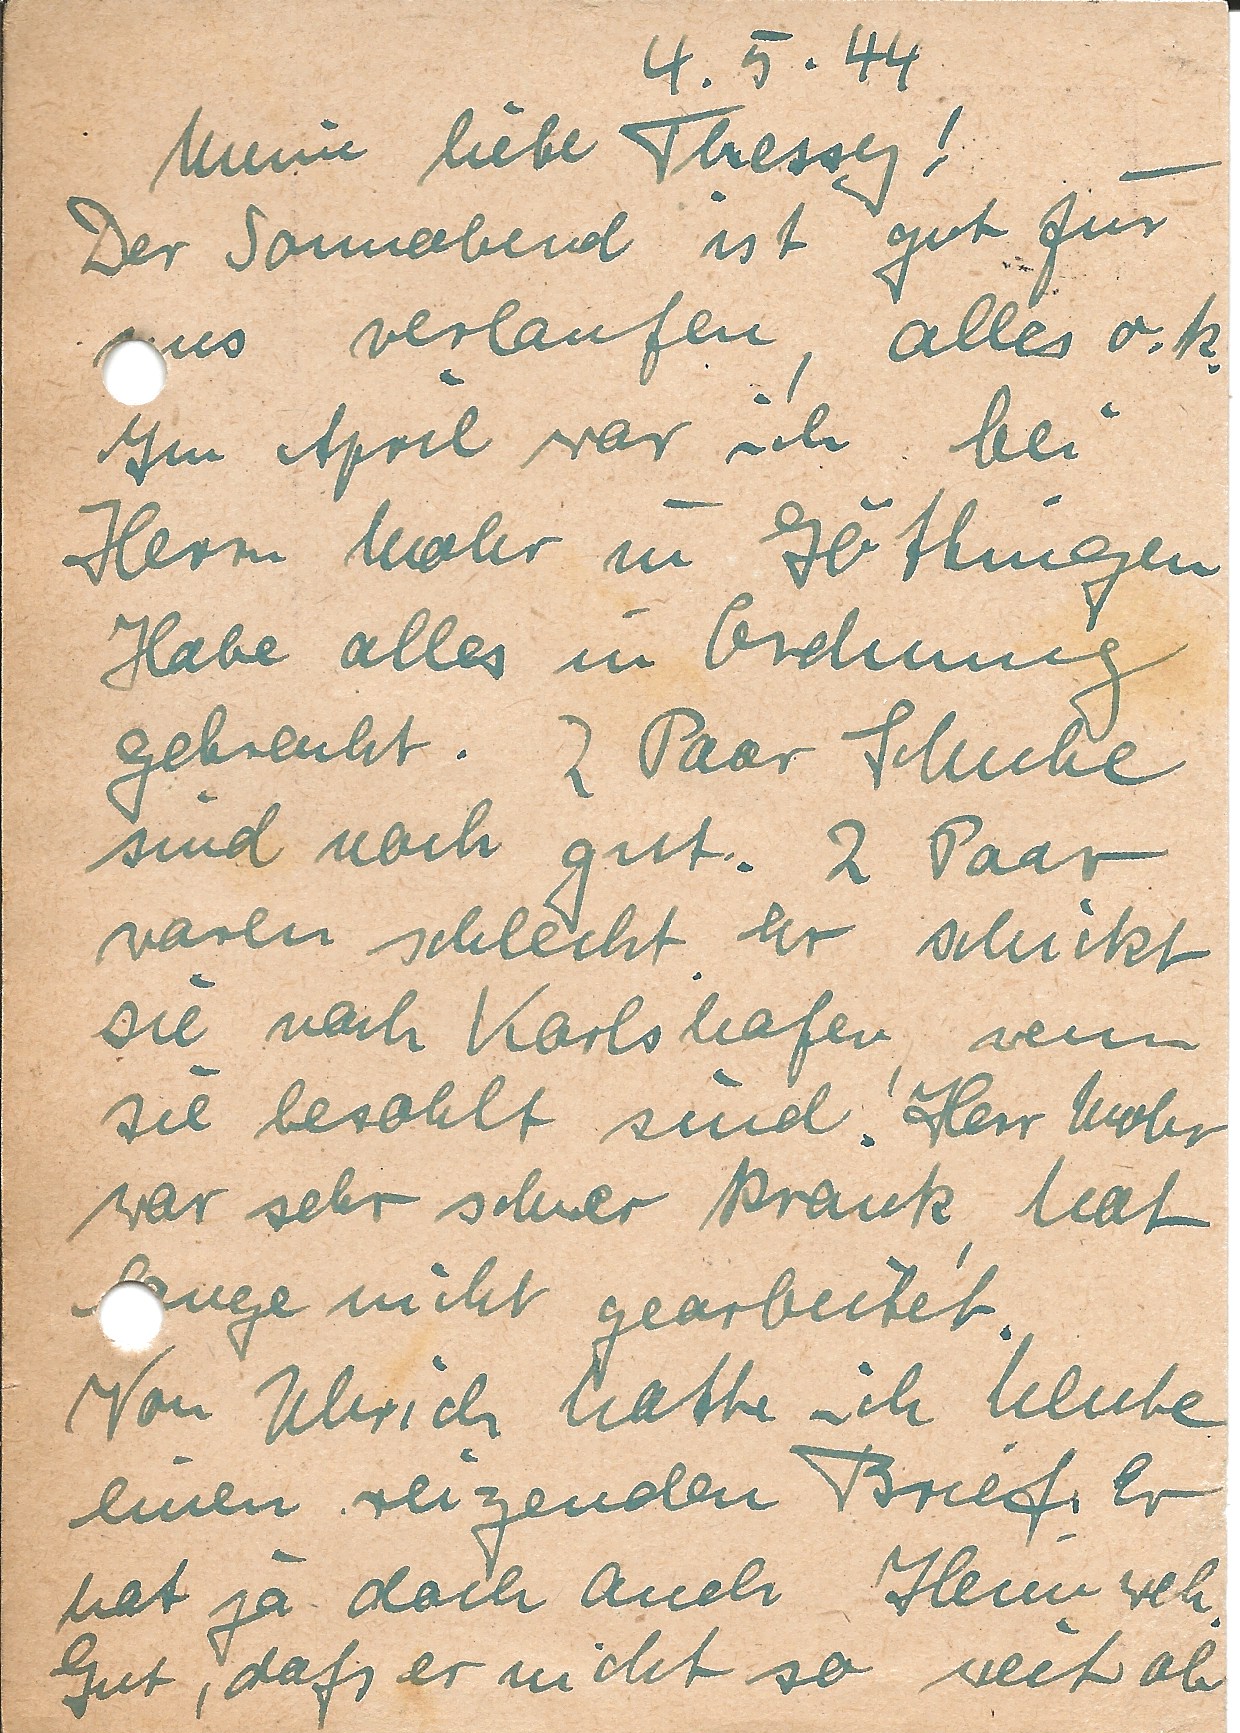 4. 5. 44
Meine liebe Thressy!
Der Sonnabend ist gut für
uns verlaufen, alles o.k.
Im April war ich bei
Herrn Mohr in Göttingen
Habe alles in Ordnung
gebracht. 2 Paar Schuhe
sind noch gut. 2 Paar
waren schlecht. Er schickt
sie nach Karlshafen, wenn
sie besohlt sind! Herr Mohr
war sehr schwer krank, hat
lange nicht gearbeitet.
Von Ulrich hatte ich heute
einen reizenden Brief. Er
hat ja doch auch Heimweh.
Gut, daß er nicht so weit ab